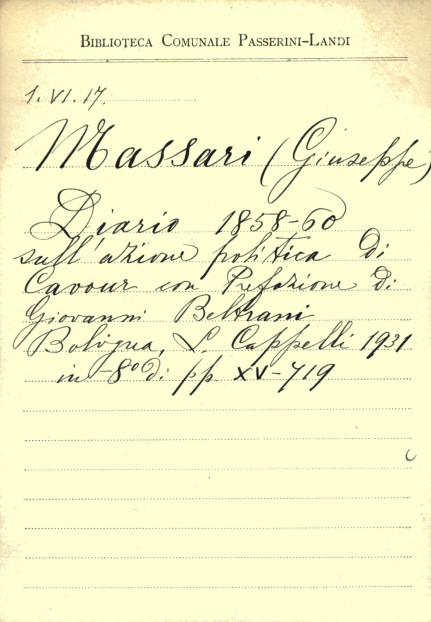 BIBLIOTECA COMUNALE PASSERINI-LANDI
1. VI. 17.
Massari (Giuseppe)
Diario 1858-60
sull'azione politica di
Cavour con Prefazione di
Giovanni Beltrani
Bologna, L. Cappelli 1931
in-8° di pp. XV-719